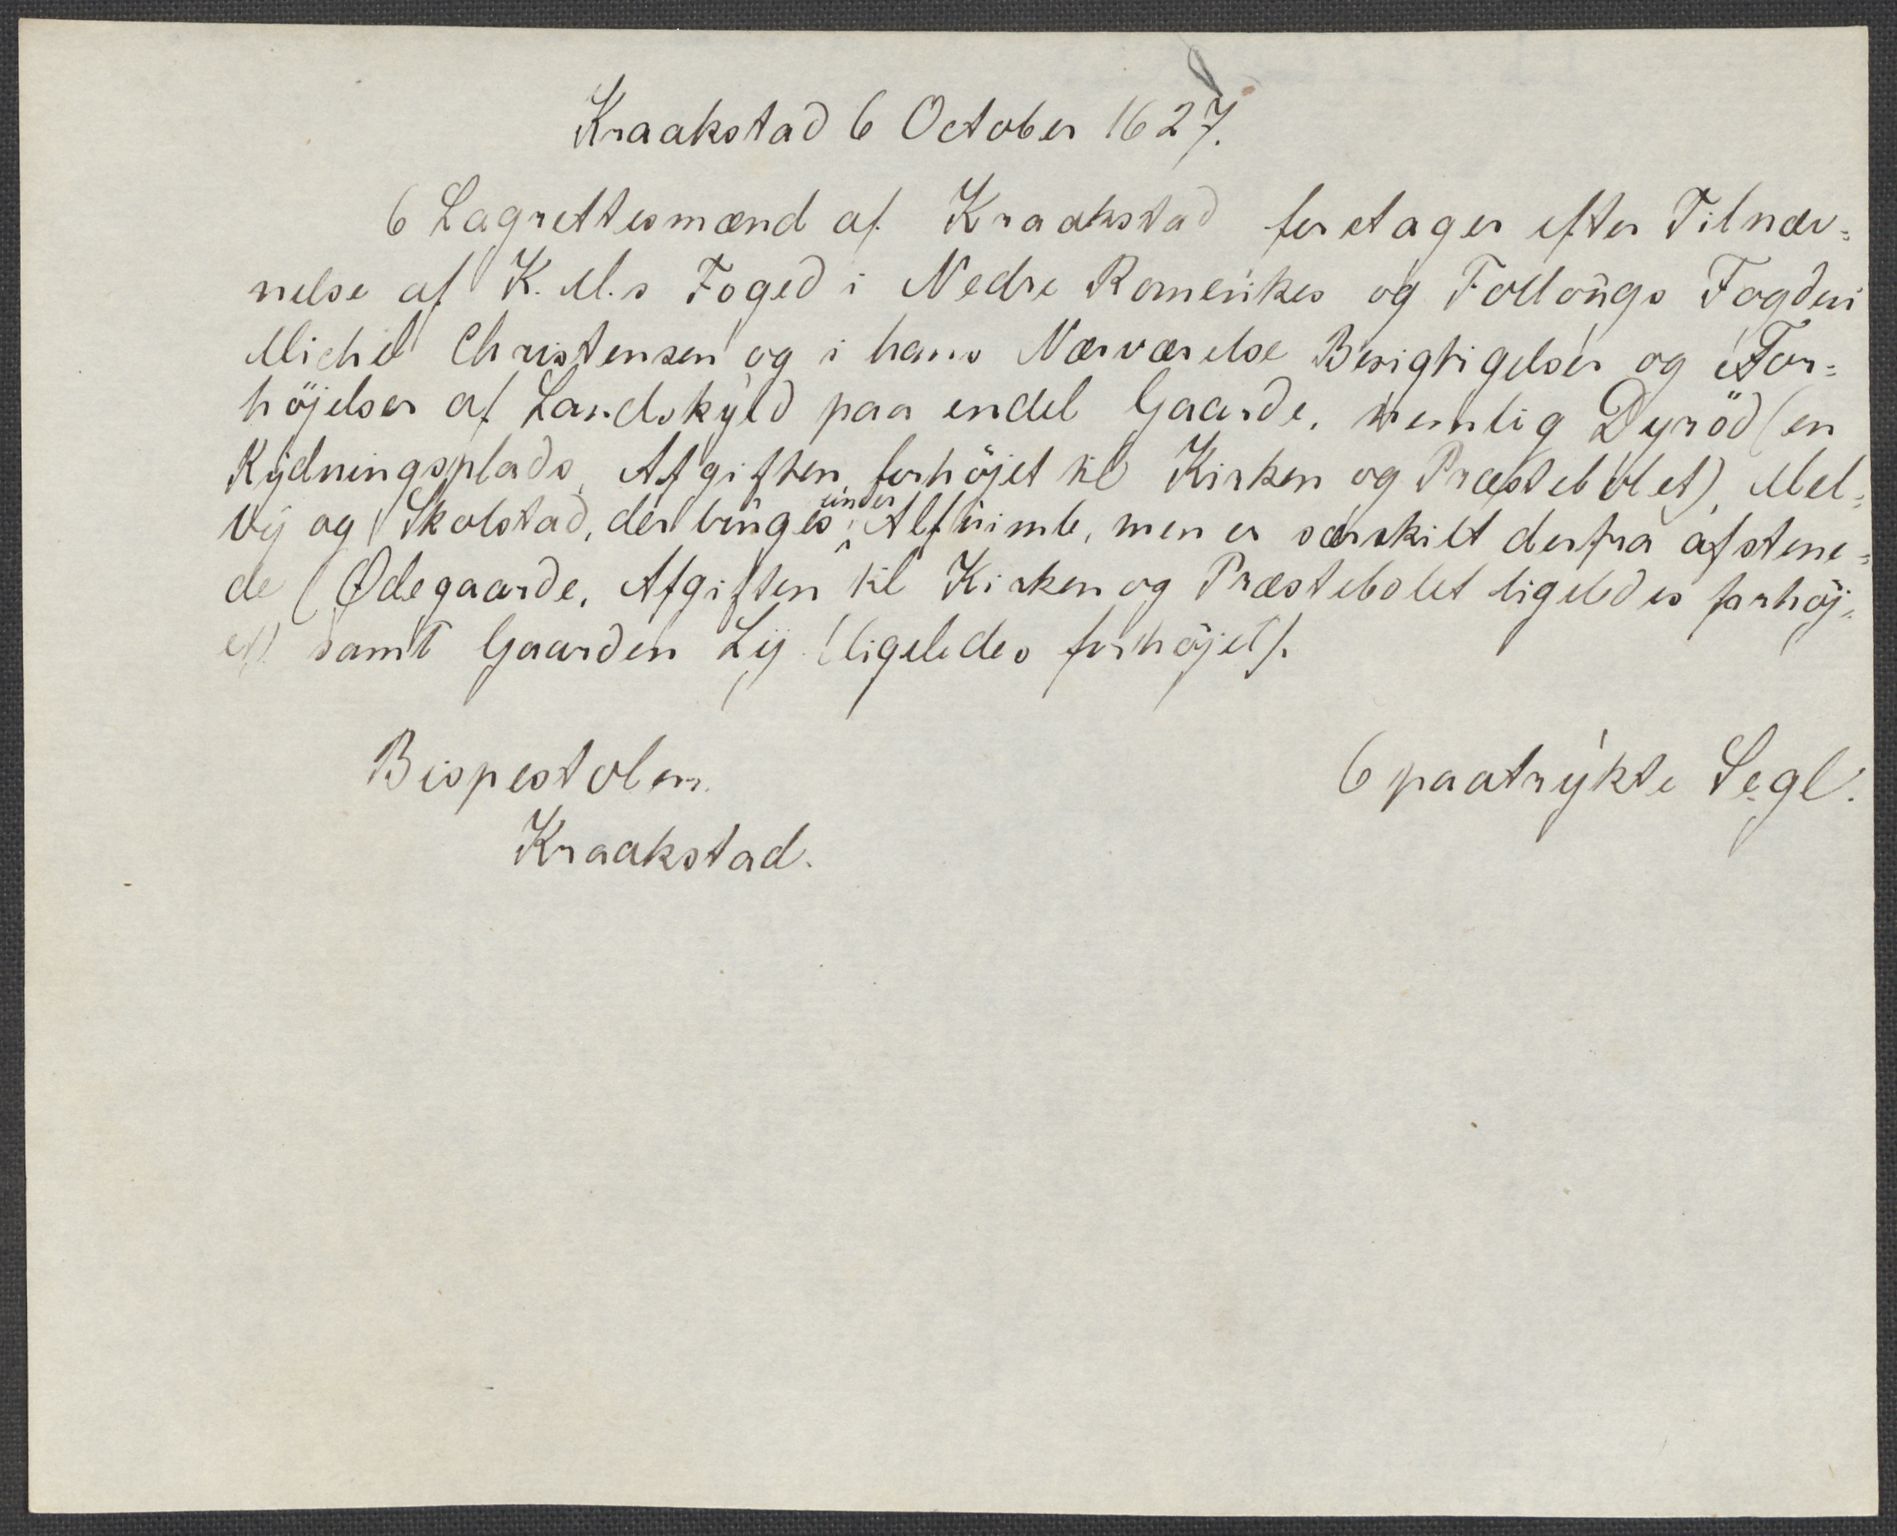 Kraakstad 6 October 1627.
6 Lagrettesmænd af Kraakstad foretager efter Tilnæv-
nelse af K. M.s Foged i Nedre Romerikes og Follougs Fogderi
Michel Christensen og i hans Nærværelse Besigtigelser og For-
höjelser af Landskyld paa endel Gaarde, nemlig Dyröd (en
Rydningsplads, Afgiften forhöjet til Kirken og Præstebolet), Mel-
vij og Skolstad, der bruges under Alfuimb, men er særskilt derfra afstene-
de (Ødegaarde, Afgiften til Kirken og Præstebolet ligeledes forhöj-
et) samt Gaarden Lij (ligeledes forhöjet).
Bispestolen. 6 paatrykte Segl.
Kraakstad.